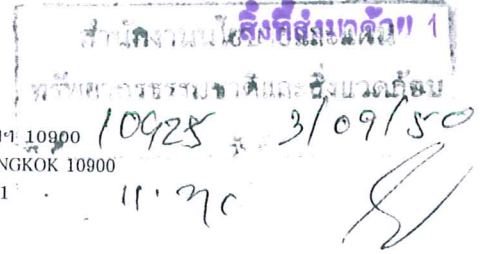 สิ่งที่ส่งมาด้วย 1
สำนักงานนโยบายและแผน
ทรัพยากรธรรมชาติและสิ่งแวดล้อม
10900 10925 3/09/50
NGKOK 10900
1